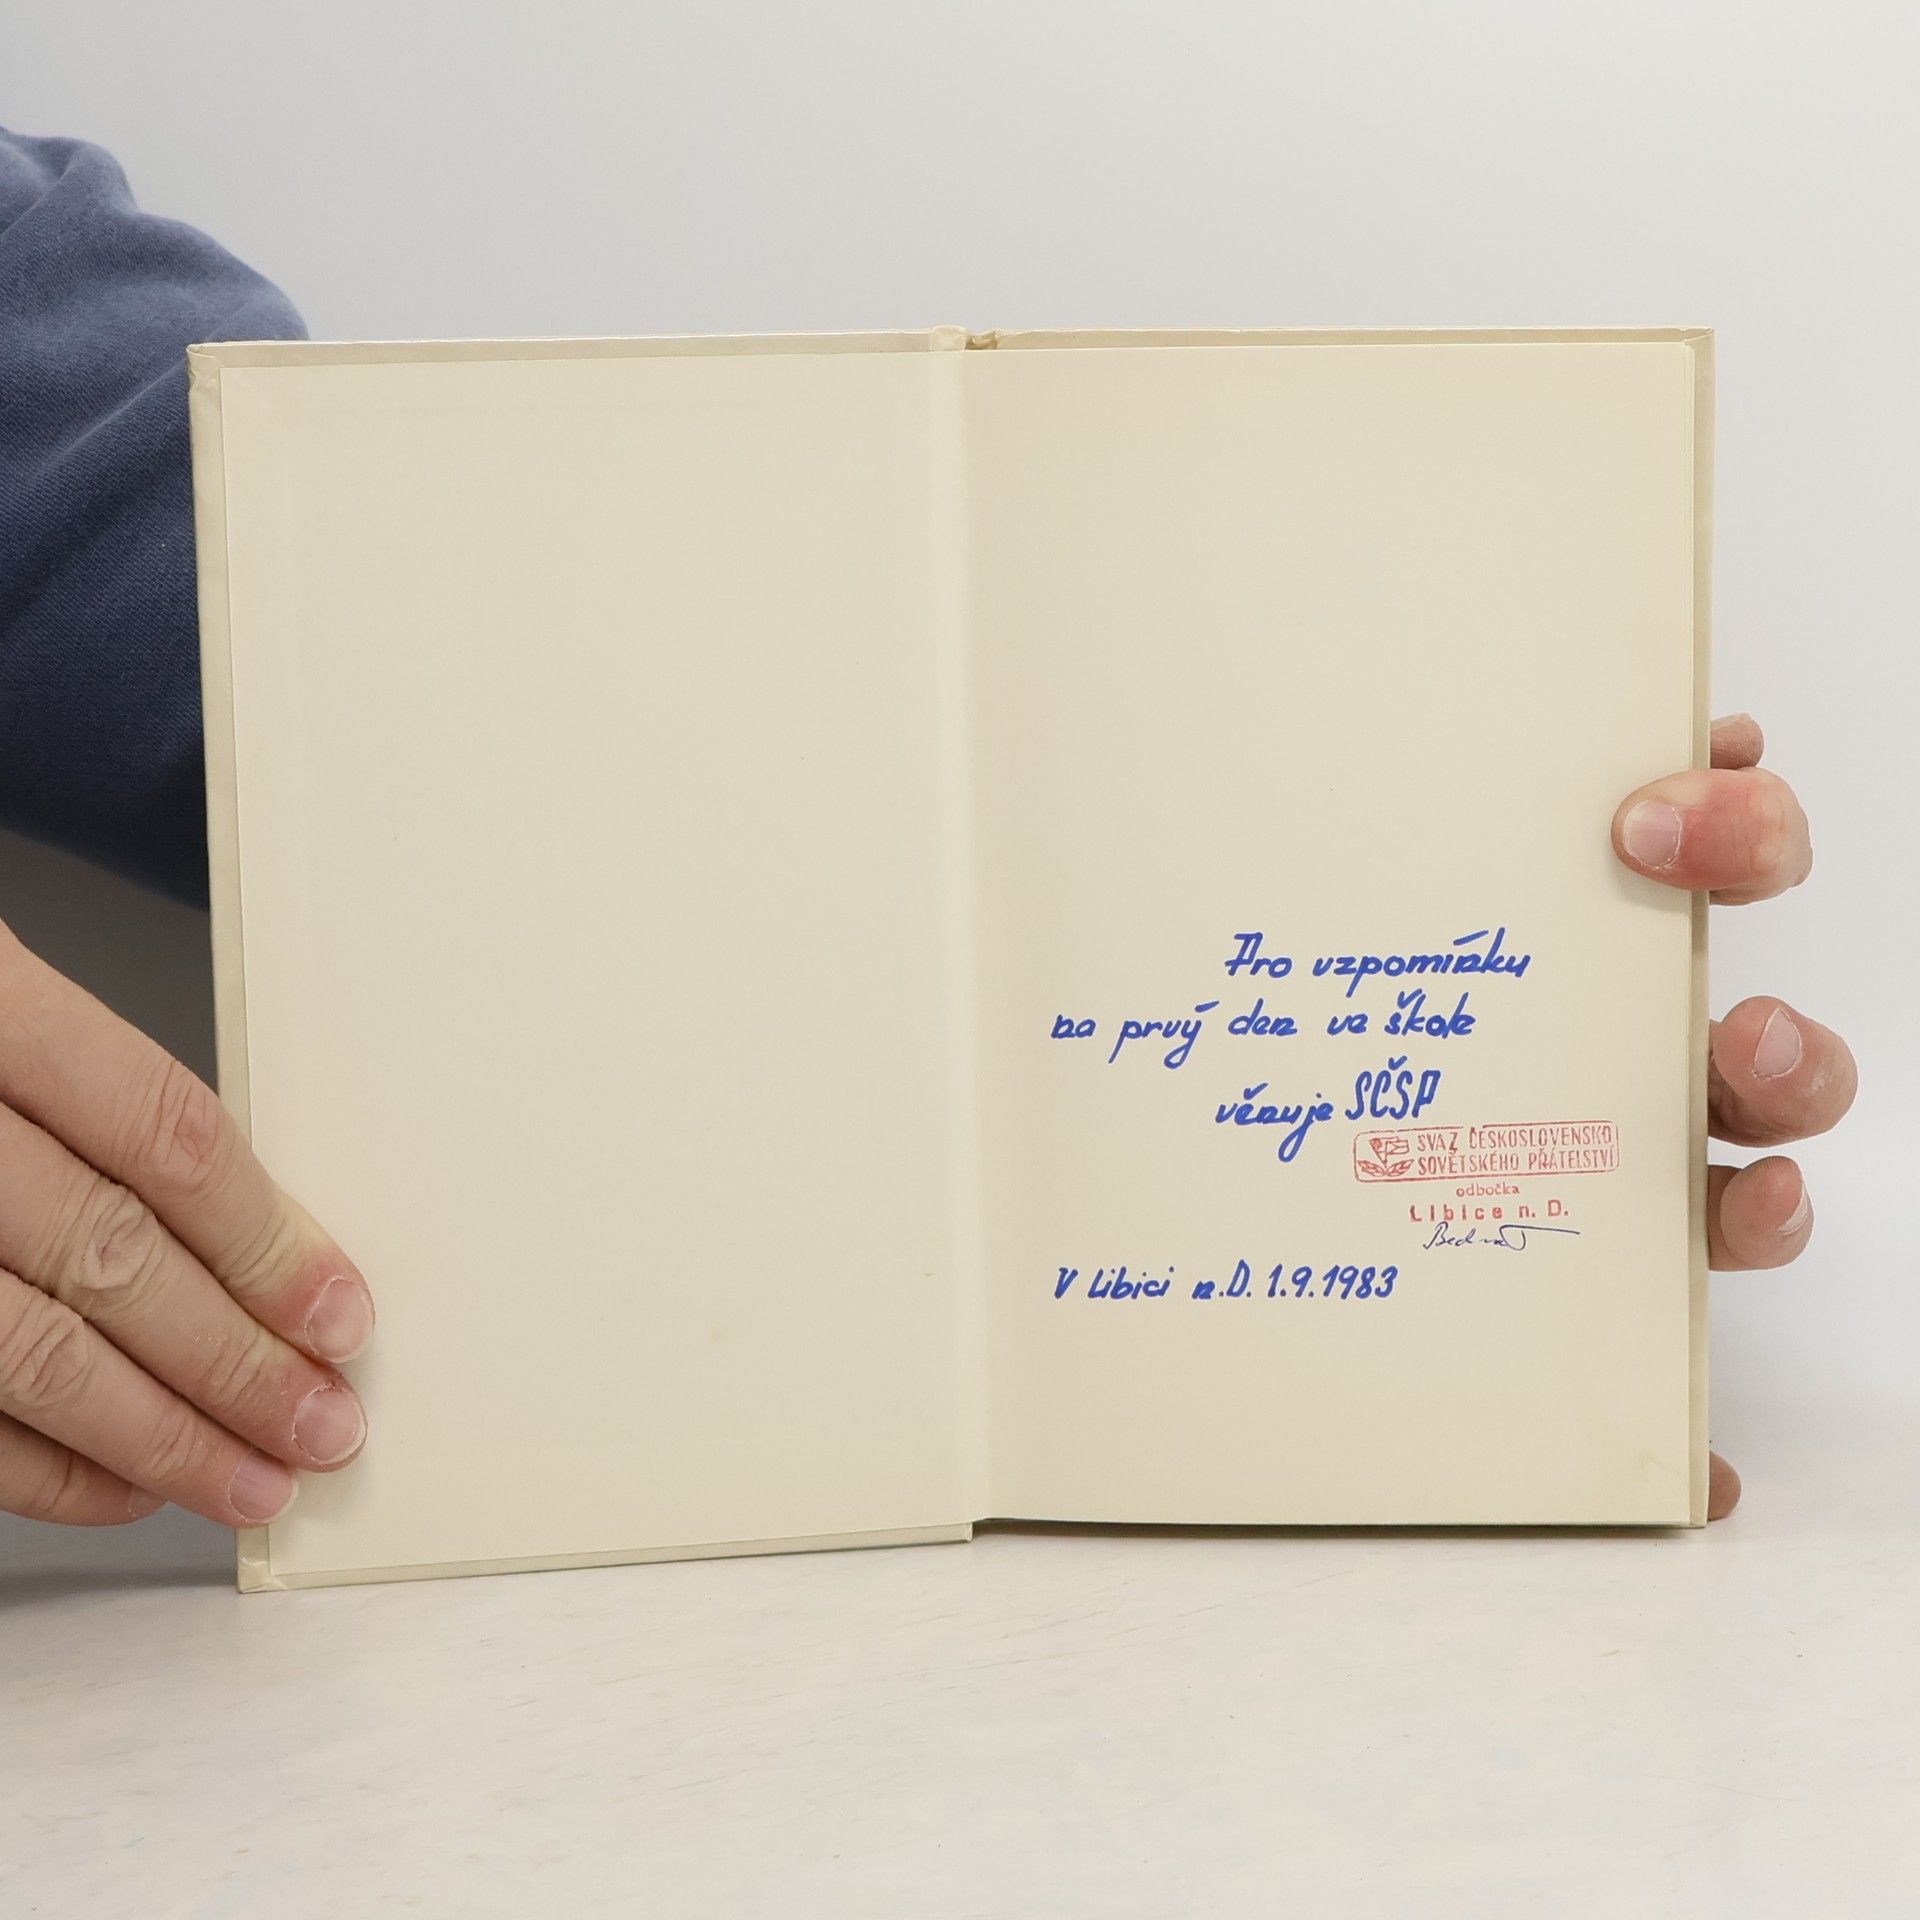 Pro vzpomínku
na prvý den ve škole
věnuje SČSP
SVAZ ČESKOSLOVENSKO
SOVĚTSKÉHO PŘÁTELSTVÍ
odbočka
Libice n. D.
V Libici n.D. 1.9.1983